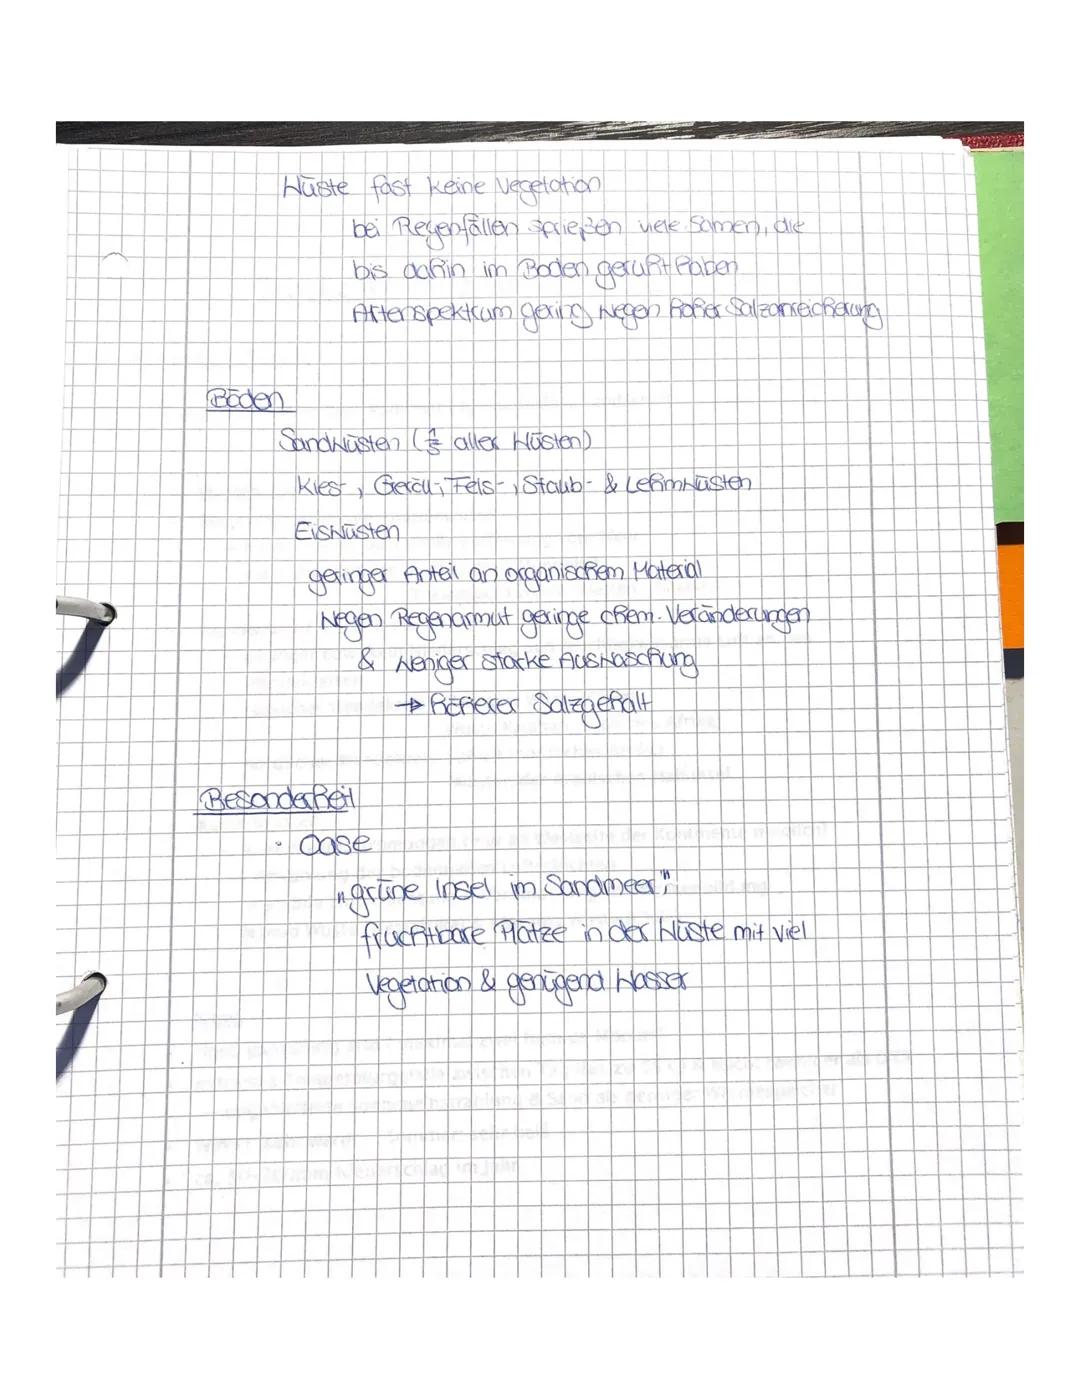 Wüste fast keine Vegetation
bei Regenfällen sprießen viele Samen, die
bis dahin im Boden geruht haben
Artenspektrum gering wegen hoher Salzanreicherung
Böden
Sandwüsten (1/5 aller Wüsten)
Kies-, Geröll-, Fels-, Staub- & Lehmwüsten
Eiswüsten
geringer Anteil an organischem Material
wegen Regenarmut geringe chem. Veränderungen
& weniger starke Auswaschung
→ höherer Salzgehalt
Besonderheit
· Oase
„grüne Insel im Sandmeer";
fruchtbare Plätze in der Wüste mit viel
Vegetation & genügend Wasser